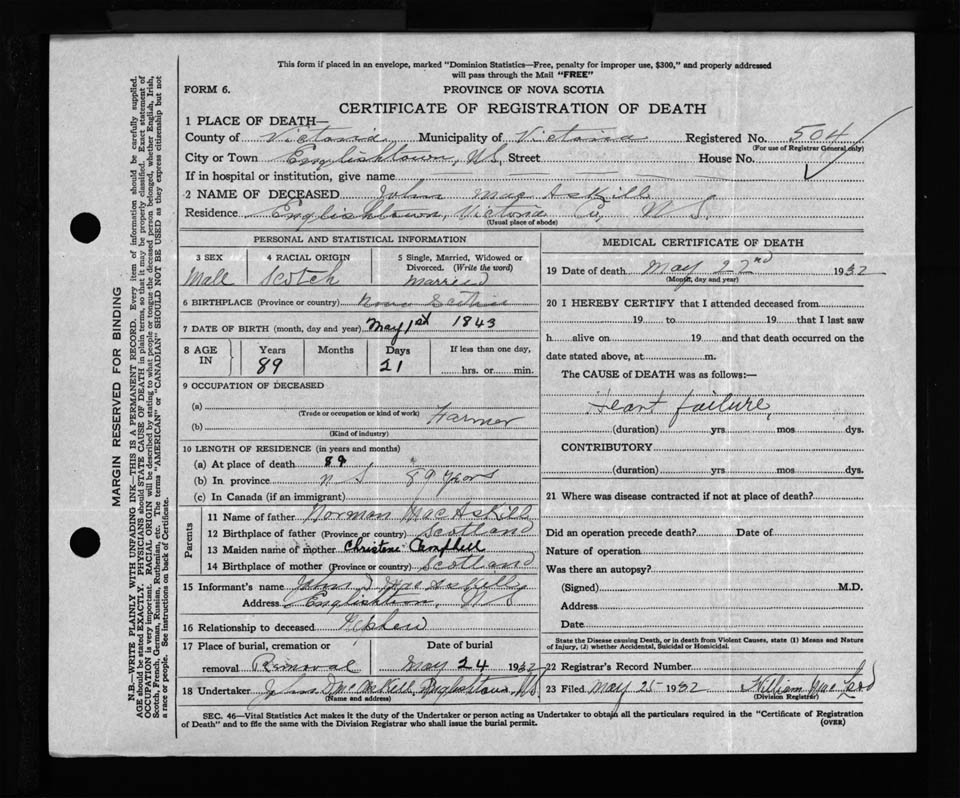 This form if placed in an envelope, marked "Dominion Statistics—Free, penalty for improper use, $300," and properly addressed
will pass through the Mail "FREE"
FORM 6. PROVINCE OF NOVA SCOTIA
CERTIFICATE OF REGISTRATION OF DEATH
1 PLACE OF DEATH—
County of Victoria Municipality of Victoria Registered No. 504
(For use of Registrar General only)
City or Town Englishtown, N.S. Street House No.
If in hospital or institution, give name
2 NAME OF DECEASED John MacAskill
Residence Englishtown, Victoria Co, N S.
(Usual place of abode)
PERSONAL AND STATISTICAL INFORMATION
3 SEX 4 RACIAL ORIGIN 5 Single, Married, Widowed or Divorced. (Write the word)
Male Scotch Married
6 BIRTHPLACE (Province or country) Nova Scotia
7 DATE OF BIRTH (month, day and year) May 1st 1843
8 AGE IN Years Months Days If less than one day,
89 21 hrs. or min.
9 OCCUPATION OF DECEASED
(a)
(Trade or occupation or kind of work) Farmer
(b)
(Kind of industry)
10 LENGTH OF RESIDENCE (in years and months)
(a) At place of death 89
(b) In province N S 89 years
(c) In Canada (if an immigrant)
Parents
11 Name of father Norman MacAskill
12 Birthplace of father (Province or country) Scotland
13 Maiden name of mother Christene Campbell
14 Birthplace of mother (Province or country) Scotland
15 Informant's name John D MacAskill
Address Englishtown, N S
16 Relationship to deceased Nephew
17 Place of burial, cremation or Date of burial
removal Removal May 24 1932
18 Undertaker John D MacAskill, Englishtown, N.S.
(Name and address)
MEDICAL CERTIFICATE OF DEATH
19 Date of death May 22nd 1932
(Month, day and year)
20 I HEREBY CERTIFY that I attended deceased from
19 to 19 that I last saw
h alive on 19 and that death occurred on the
date stated above, at m.
The CAUSE of DEATH was as follows:—
Heart failure,
(duration) yrs mos dys.
CONTRIBUTORY
(duration) yrs mos dys.
21 Where was disease contracted if not at place of death?
Did an operation precede death? Date of
Nature of operation
Was there an autopsy?
(Signed) M.D.
Address
Date
State the Disease causing Death, or in death from Violent Causes, state (1) Means and Nature
of Injury, (2) whether Accidental, Suicidal or Homicidal.
22 Registrar's Record Number
23 Filed May 25 1932 William MacLeod
(Division Registrar)
SEC. 46—Vital Statistics Act makes it the duty of the Undertaker or person acting as Undertaker to obtain all the particulars required in the "Certificate of Registration
of Death" and to file the same with the Division Registrar who shall issue the burial permit. (OVER)
MARGIN RESERVED FOR BINDING
N.B.—WRITE PLAINLY WITH UNFADING INK—THIS IS A PERMANENT RECORD. Every item of information should be carefully supplied.
AGE should be stated EXACTLY. PHYSICIANS should STATE CAUSE OF DEATH in plain terms, so that it may be properly classified. Exact statement of
OCCUPATION is very important. RACIAL ORIGIN will be described by stating to what people or tongue the deceased person belonged, whether English, Irish,
Scotch, French, German, Russian, Ruthenian, etc. The terms "AMERICAN" or "CANADIAN" SHOULD NOT BE USED as they express citizenship but not
a race or people. See instructions on back of Certificate.